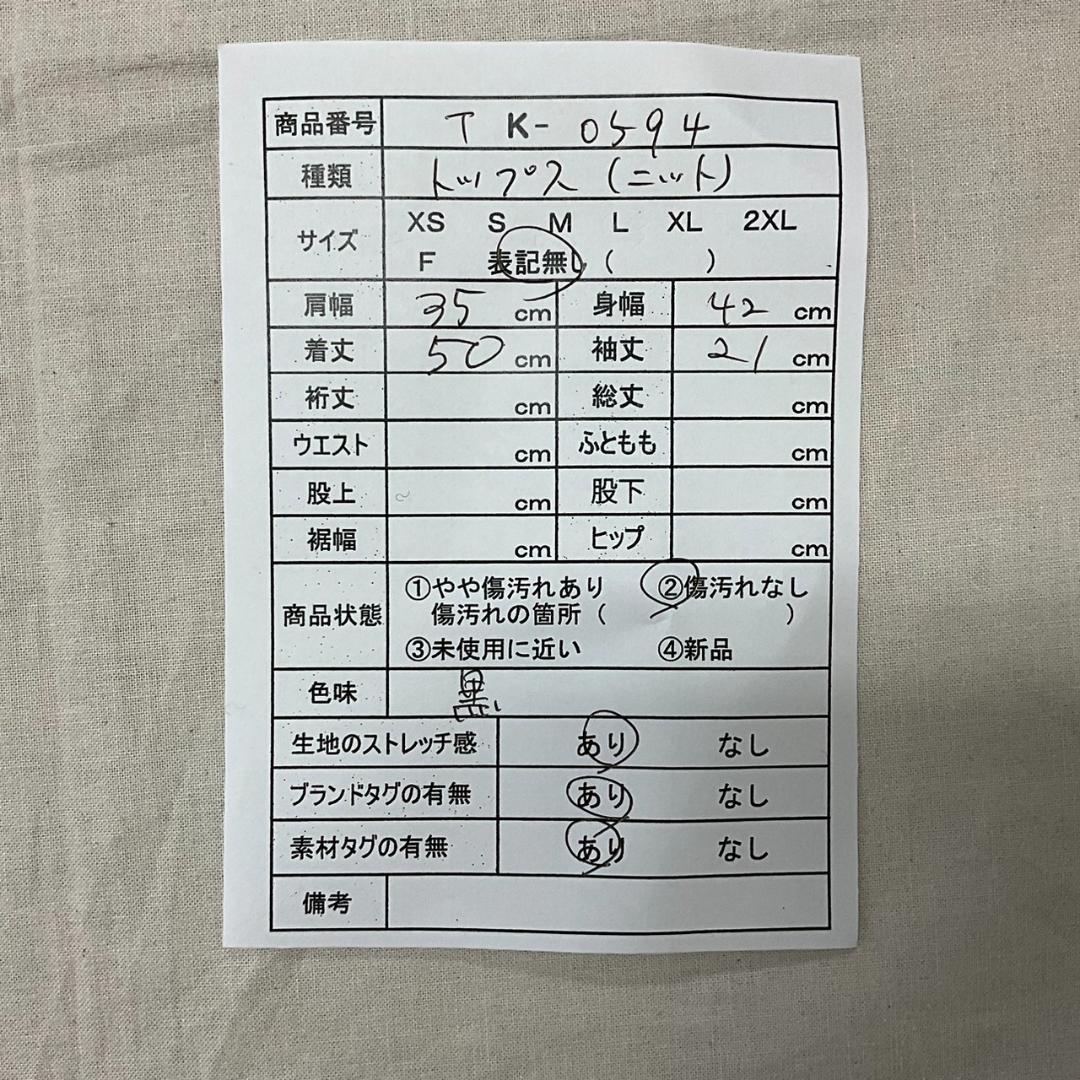 商品番号 T K- 0594
種類 トップス (ニット)
サイズ XS S M L XL 2XL
F 表記無し ( )
肩幅 35 cm 身幅 42 cm
着丈 50 cm 袖丈 21 cm
裄丈 cm 総丈 cm
ウエスト cm ふともも cm
股上 cm 股下 cm
裾幅 cm ヒップ cm
商品状態 ①やや傷汚れあり ②傷汚れなし
傷汚れの箇所 ( )
③未使用に近い ④新品
色味 黒
生地のストレッチ感 あり なし
ブランドタグの有無 あり なし
素材タグの有無 あり なし
備考